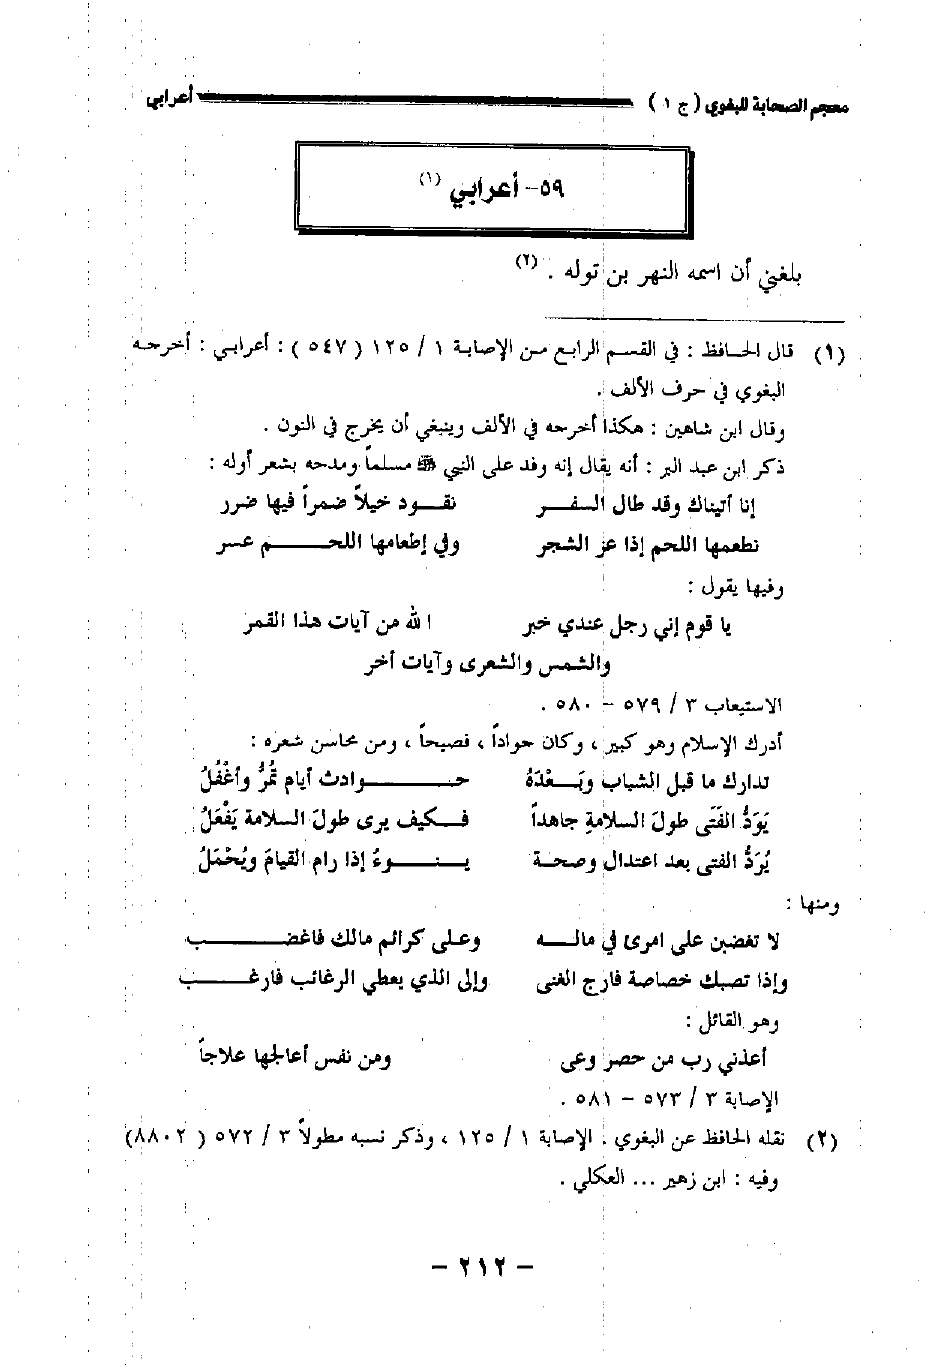 معجم الصحابة للبغوي ( ج ١ ) أعرابي
٥٩- أعرابي (١)
بلغني أن اسمه النهر بن توله . (٢)
(١) قال الحافظ : في القسم الرابع من الإصابة ١ / ١٢٥ ( ٥٤٧ ) : أعرابي : أخرجه
البغوي في حرف الألف .
وقال ابن شاهين : هكذا أخرجه في الألف وينبغي أن يخرج في النون .
ذكر ابن عبد البر : أنه يقال إنه وفد على النبي ﷺ مسلماً ومدحه بشعر أوله :
إنا أتيناك وقد طال السفـــر نقـــود خيلاً ضمراً فيها ضرر
نطعمها اللحم إذا عز الشجر وفي إطعامها اللحـــــم عسر
وفيها يقول :
يا قوم إني رجل عندي خبر الله من آيات هذا القمر
والشمس والشعرى وآيات أخر
الاستيعاب ٣ / ٥٧٩ – ٥٨٠ .
أدرك الإسلام وهو كبير ، وكان جواداً ، فصيحاً ، ومن محاسن شعره :
تدارك ما قبل الشباب وبَـــعْدَهُ حـــــــــوادث أيام تَمُرُّ وأغْفُلُ
يَوَدُّ الفَتَى طولَ السلامةِ جاهداً فـــكيف يرى طولَ السلامة يَفْعَلُ
يُرَدُّ الفتى بعد اعتدال وصحـــة يـــنــــوءُ إذا رام القيامَ ويُحْمَلُ
ومنها :
لا تغضبن على امرئ في مالـــه وعلى كرائم مالك فاغضـــــــب
وإذا تصبك خصاصة فارج الغنى وإلى الذي يعطي الرغائب فارغـــــب
وهو القائل :
أعذني رب من حصر وعى ومن نفس أعالجها علاجاً
الإصابة ٣ / ٥٧٣ – ٥٨١ .
(٢) نقله الحافظ عن البغوي . الإصابة ١ / ١٢٥ ، وذكر نسبه مطولاً ٣ / ٥٧٢ ( ٨٨٠٢)
وفيه : ابن زهير ... العكلي .
– ٢١٢ –